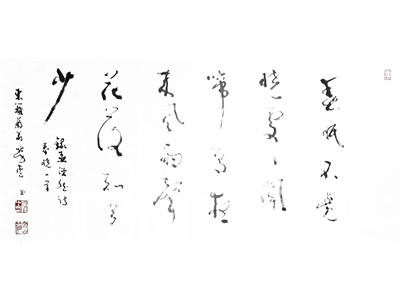 春眠不覺
曉處々聞
啼鳥夜
來風雨聲
花落知多
少
錄孟浩然詩
春曉一首
書